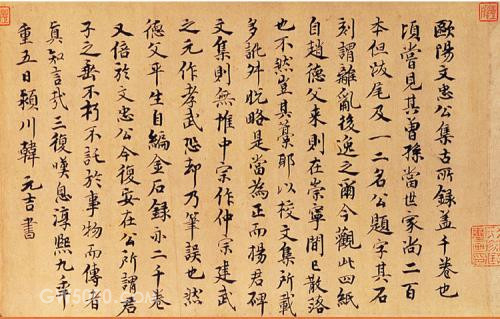 歐陽文忠公集古所録蓋千卷也
頃嘗見其曾孫當世家尚二百
本但跋尾及一二名公題字其石
刻謂離亂後逸之爾今觀此四紙
自趙德父來則在崇寧間已散落
也不然豈其藁耶以校文集所載
多訛舛脱略是當為正而楊君碑
文集則無惟中宗作仲宗建武
之元作孝武恐却乃筆誤也然
德父平生自編金石録亦二千卷
又倍於文忠公今復安在公所謂君
子之垂不朽不託於事物而傳者
真知言哉三復嘆息淳熙九年
重五日潁川韓元吉書